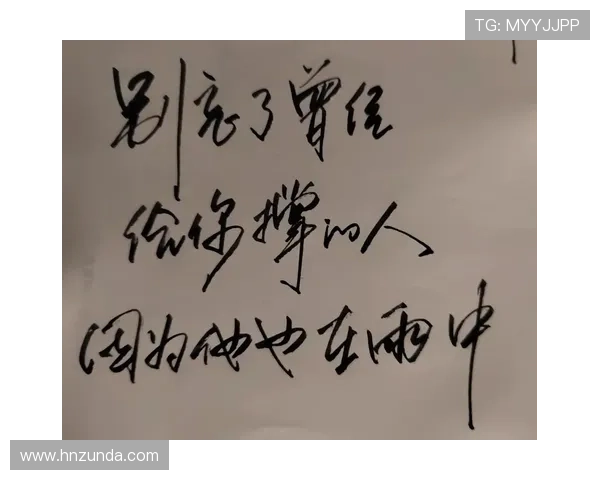 TG: MYYJJPP
别忘了曾经
给你撑的人
因为他也在雨中
www.hnzunda.com